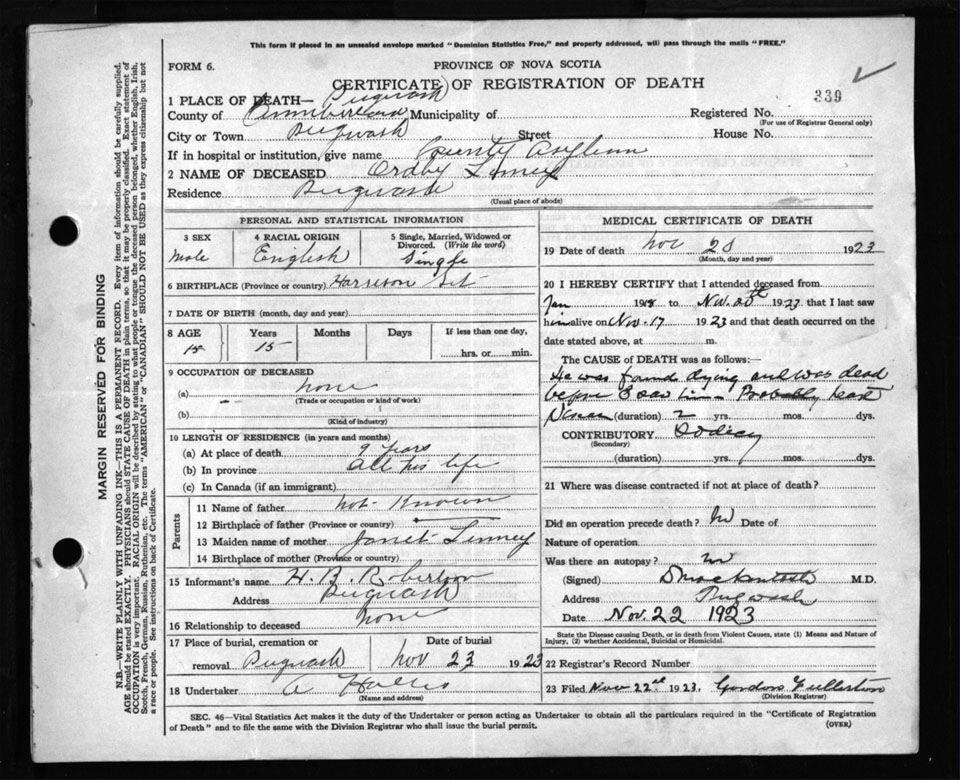 This form if placed in an unsealed envelope marked "Dominion Statistics Free," and properly addressed, will pass through the mails "FREE."
FORM 6.
PROVINCE OF NOVA SCOTIA
CERTIFICATE OF REGISTRATION OF DEATH
339
1 PLACE OF DEATH— Pugwash
County of Cumberland Municipality of Registered No.
(For use of Registrar General only)
City or Town Pugwash Street House No.
If in hospital or institution, give name County Asylum
2 NAME OF DECEASED
Residence Pugwash
(Usual place of abode)
PERSONAL AND STATISTICAL INFORMATION
3 SEX 4 RACIAL ORIGIN 5 Single, Married, Widowed or Divorced. (Write the word)
Male English Single
6 BIRTHPLACE (Province or country) Harrison Set
7 DATE OF BIRTH (month, day and year)
8 AGE Years Months Days If less than one day,
15 15 hrs. or min.
9 OCCUPATION OF DECEASED
(a) none
(Trade or occupation or kind of work)
(b)
(Kind of industry)
10 LENGTH OF RESIDENCE (in years and months)
(a) At place of death 9 years
(b) In province all his life
(c) In Canada (if an immigrant)
Parents
11 Name of father not Known
12 Birthplace of father (Province or country)
13 Maiden name of mother Janet Linney
14 Birthplace of mother (Province or country)
15 Informant's name H. B. Robertson
Address Pugwash
16 Relationship to deceased none
17 Place of burial, cremation or Date of burial
removal Pugwash Nov 23 1923
18 Undertaker A Hollis
(Name and address)
MEDICAL CERTIFICATE OF DEATH
19 Date of death Nov 20 1923
(Month, day and year)
20 I HEREBY CERTIFY that I attended deceased from
Jan 1918 to Nov. 20th 1923 that I last saw
him alive on Nov. 17 1923 and that death occurred on the
date stated above, at m.
The CAUSE of DEATH was as follows:
He was found dying and was dead
before I saw him Probably heart
Disease (duration) 2 yrs. mos. dys.
CONTRIBUTORY Idiocy
(Secondary)
(duration) yrs. mos. dys.
21 Where was disease contracted if not at place of death?
Did an operation precede death? No Date of
Nature of operation
Was there an autopsy? no
(Signed) Mackintosh M.D.
Address Pugwash
Date Nov. 22 1923
State the Disease causing Death, or in death from Violent Causes, state (1) Means and Nature of
Injury, (2) whether Accidental, Suicidal or Homicidal.
22 Registrar's Record Number
23 Filed Nov 22nd 1923. Gordon Fullerton
(Division Registrar)
SEC. 46—Vital Statistics Act makes it the duty of the Undertaker or person acting as Undertaker to obtain all the particulars required in the "Certificate of Registration
of Death" and to file the same with the Division Registrar who shall issue the burial permit. (OVER)
MARGIN RESERVED FOR BINDING
N.B.—WRITE PLAINLY WITH UNFADING INK—THIS IS A PERMANENT RECORD. Every item of information should be carefully supplied.
AGE should be stated EXACTLY. PHYSICIANS should STATE CAUSE OF DEATH in plain terms, so that it may be properly classified. Exact statement of
OCCUPATION is very important. RACIAL ORIGIN will be described by stating to what people or tongue the deceased person belonged, whether English, Irish,
Scotch, French, German, Russian, Ruthenian, etc. The terms "AMERICAN" or "CANADIAN" SHOULD NOT BE USED as they express citizenship but not
a race or people. See instructions on back of Certificate.